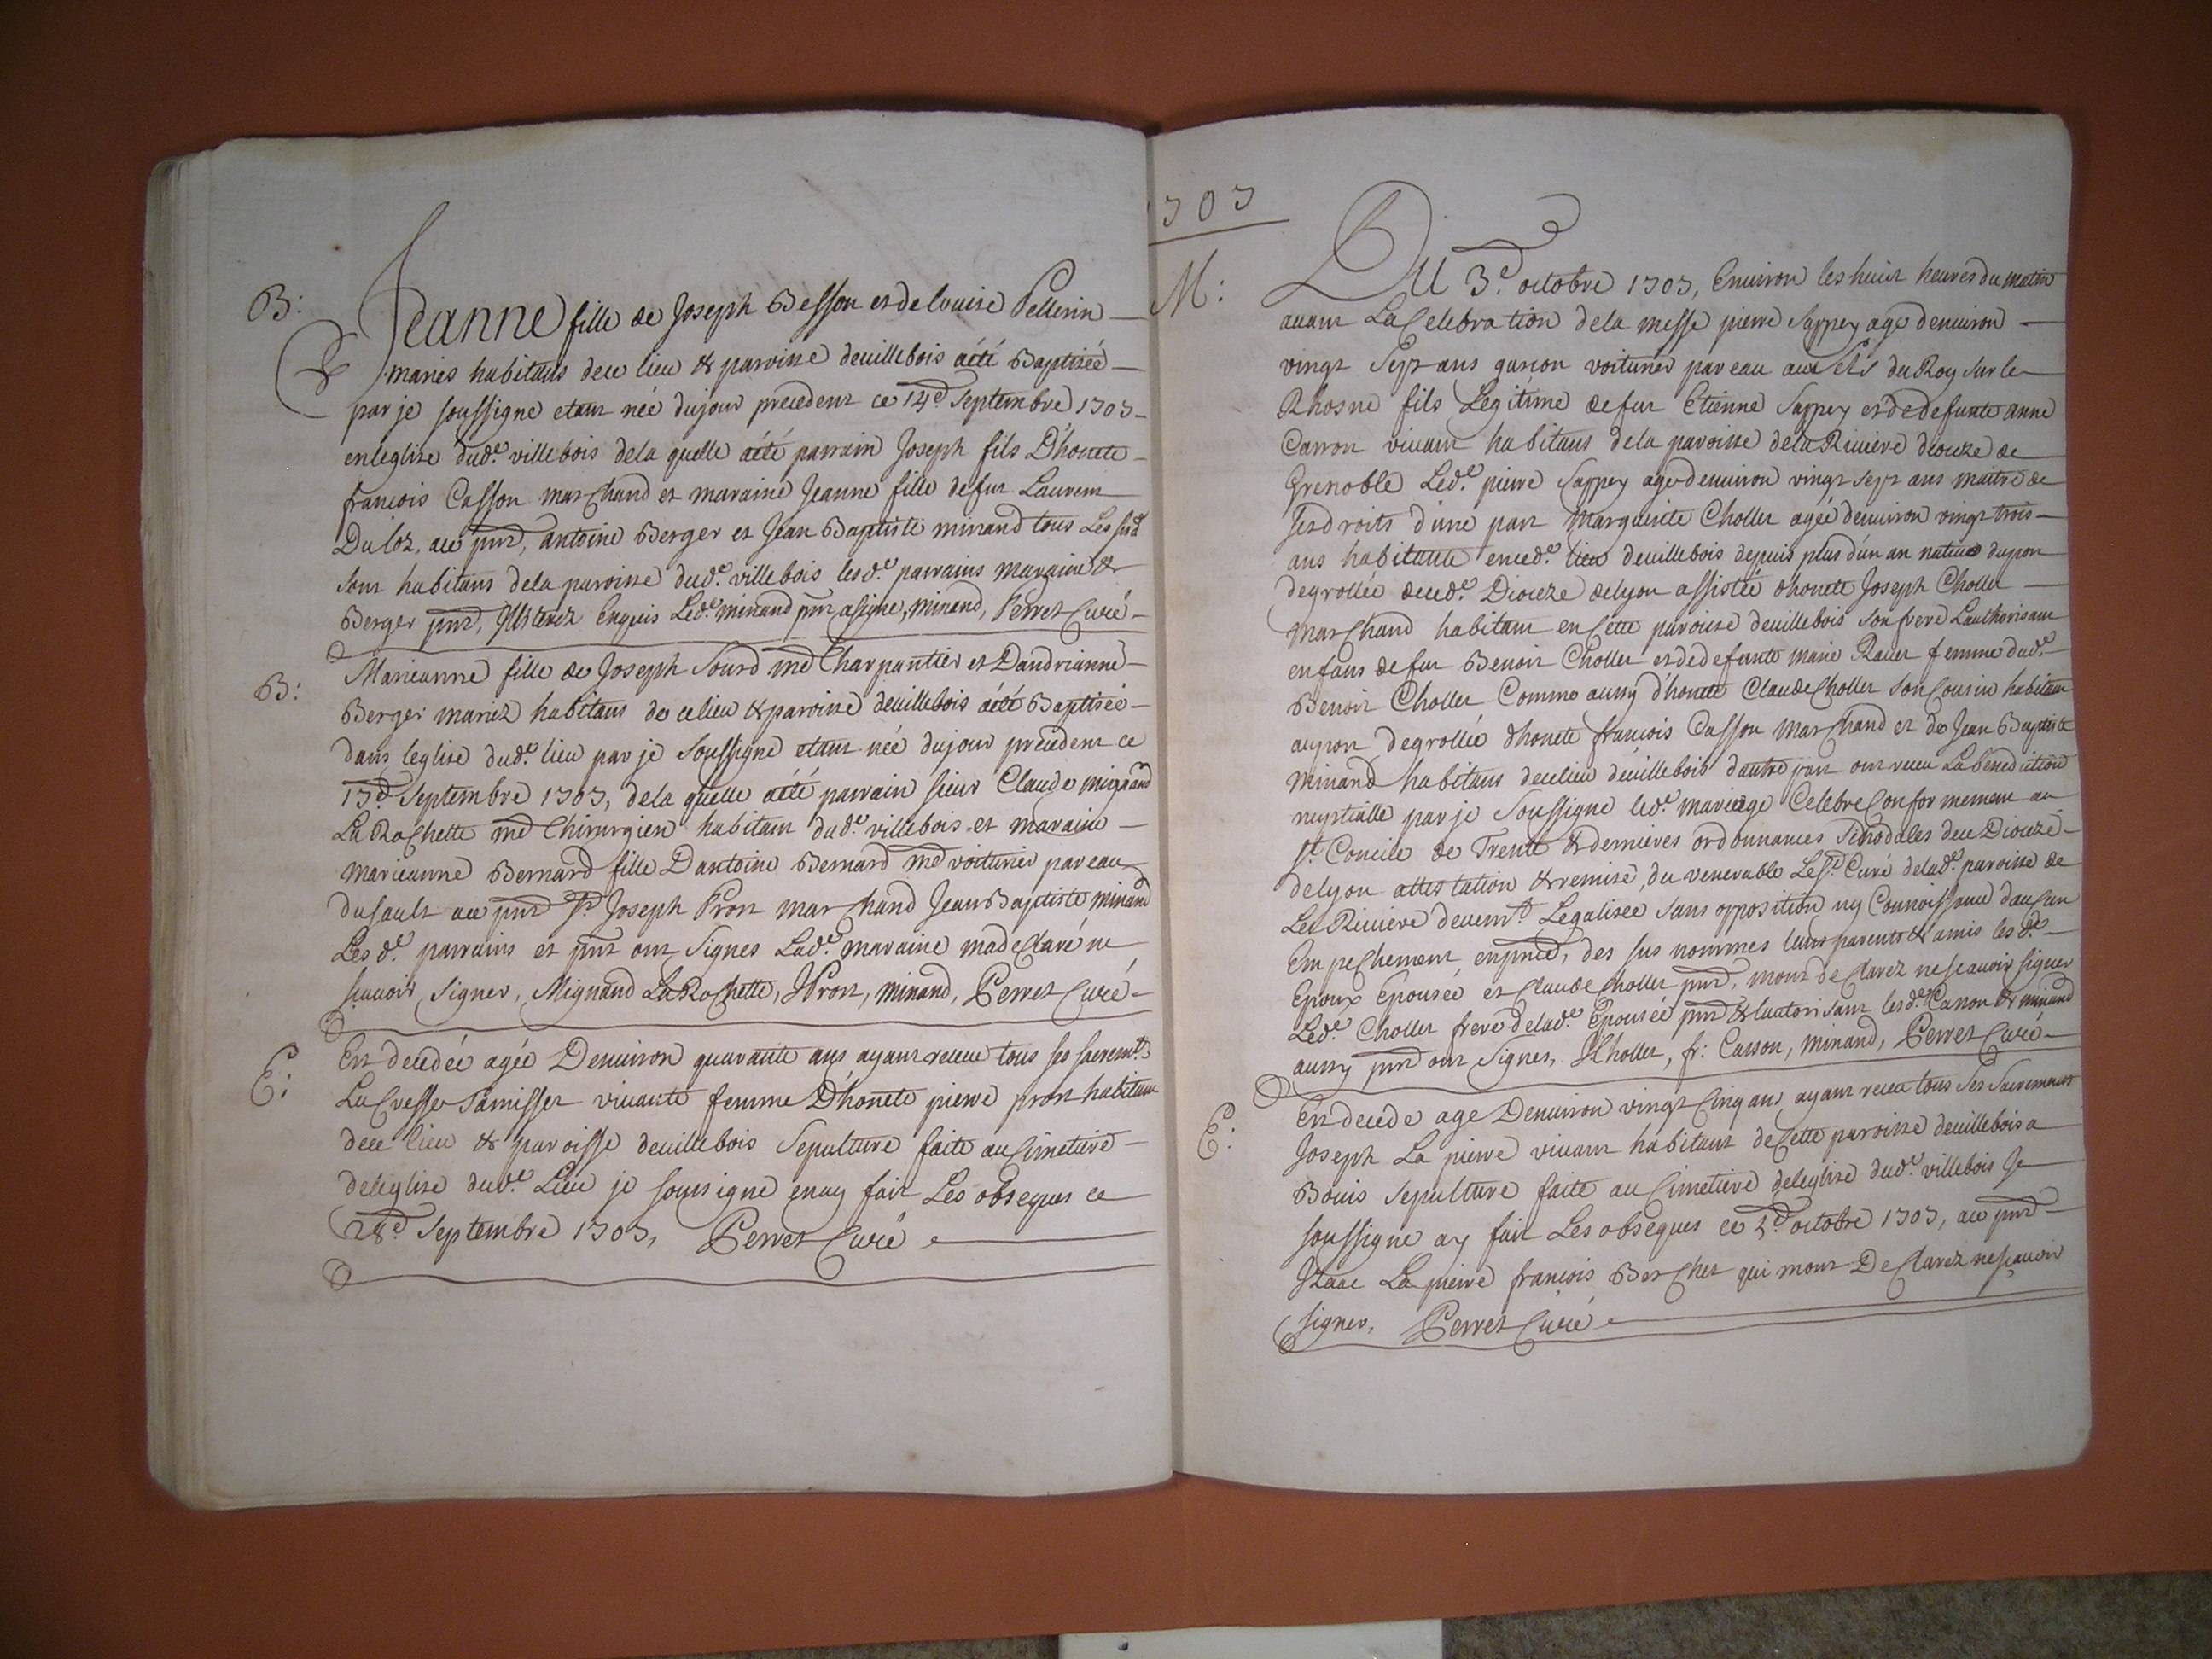 B:
Jeanne fille de Joseph Besson et de louise Pellerin
mariés habitans de ce lieu & paroisse de villebois a été Baptisée
par je soussigne etant née du jour precedent ce 14e Septembre 1703
en leglise dud.e villebois de la quelle a été parrain Joseph fils D'honete
francois Casson marchand et maraine Jeanne fille de fut Laurent
Duloz, au pnt, antoine Berger et Jean Baptiste minand tous Les susd
sont habitans de la paroisse dud.e villebois les d.e parrains maraine &
Berger pnt, Enquis Led.e minand pnt a signe, minand, Perret Curé
B:
Marieanne fille de Joseph Sourd md Charpantier et Dandrianne
Berger mariez habitans de ce lieu & paroisse de villebois a été Baptisée
dans leglise dud.e lieu par je Soussigne etant née du jour precedent ce
Septembre 1703, de la quelle a été parrain sieur Claude mignand
La Rochette md Chirurgien habitant dud.e villebois et maraine
Marieanne Bernard fille Dantoine Bernard md voiturier par eau
du sault au pnt Sr Joseph Pron marchand Jean Baptiste minand
Les d.e parrains et pnt ont Signes Lad.e maraine ma declaré ne
scavoir Signer, Mignand La Rochette, JPron, minand, Perret Curé
E:
Est decedée agée Denviron quarante ans ayant receue tous ses sacremts
Lucresse vivante femme D'honete pierre pron habitant
de ce lieu & paroisse de villebois Sepulture faite au Cimetiere
de leglise dud.e Lieu je soussigne en ay fait Les obseques ce
28e Septembre 1703, Perret Curé
1703
M:
DU 3e octobre 1703, Environ les huit heures du matin
avant La Celebration de la messe pierre Sappey age denviron
vingt Sept ans garcon voiturier par eau aux sels du Roy sur le
Rhosne fils Legitime de fut Etienne Sappey et de defunte anne
Carron vivant habitans de la paroisse de la Riviere diocize de
Grenoble Led.e pierre Sappey age denviron vingt sept ans maitre de
ses droits d'une part Marguerite Chollet agée denviron vingt trois
ans habitante en ced.e lieu de villebois depuis plus d'un an native du pon
de grollée de ced.e Diocize de lyon assistée dhonete Joseph Chollet
Marchand habitant en Cette paroisse de villebois Son frere Lauthorisant
enfans de fut Benoit Chollet et de defunte marie Ravet femme dud.e
Benoit Chollet Comme aussy d'honete Claude Chollet Son Cousin habitant
au pon de grollée dhonete francois Casson Marchand et de Jean Baptiste
Minand habitans de ce lieu de villebois dautre part ont receu La benediction
nuptialle par je Soussigne led.e mariage Celebre Conformement au
St. Concile de Trente & dernieres ordonnances Sinodales de ce Diocize
de lyon attestation & remise, du venerable Le Sr Curé de lad.e paroisse de
La Riviere devemt Legalisee Sans opposition ny Connoissance daucun
Empechement en pnce, des sus nommes leurs parents & amis les d.e
Epoux Epousée et Claude Chollet pnt, mont declarez ne scavoir signer
Led.e Chollet frere de lad.e Epousée pnt & lautorisant les d.e Casson & minand
aussy pnt ont Signes, JChollet, fr: Casson, minand, Perret Curé
E:
Est decede age Denviron vingt Cinq ans ayant receu tous Ses Sacremens
Joseph La pierre vivant habitant de Cette paroisse de villebois a
Bouis Sepulture faite au Cimetiere de leglise dud.e villebois Je
soussigne ay fait Les obseques ce octobre 1703, au pnt
Izaac La pierre francois Berchet qui mont Declarez ne scavoir
signer, Perret Curé